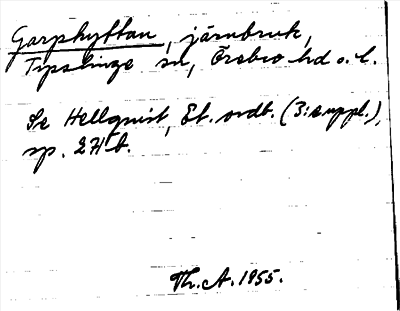 Garphyttan, järnbruk,
Tysslinge sn, Örebro hd o. l.
Se Hellquist, Et. ordb. (3: suppl.),
sp. 27 b.
Th. A. 1955.